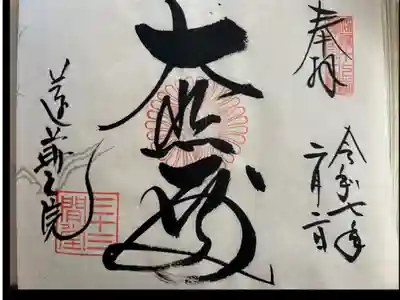 奉拝
令和七年
二月二日
大悲殿
蓮華王院
三十三
間堂